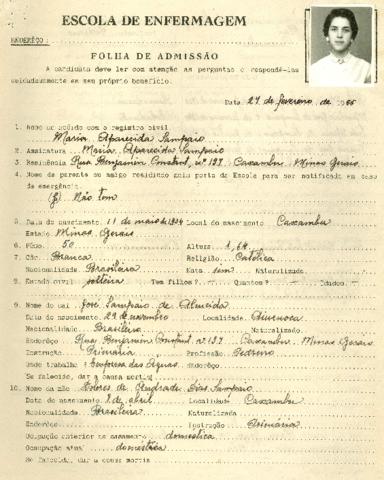 ESCOLA DE ENFERMAGEM
ENDERÊÇO:
FOLHA DE ADMISSÃO
A candidata deve ler com atenção as perguntas e respondê-las
cuidadosamente em seu próprio benefício.
Data 27 de fevereiro de 1955
1. Nome de acôrdo com o registro civil
Maria Aparecida Sampaio
2. Assinatura Maria Aparecida Sampaio
3. Residência Rua Benjamin Constant, nº 197 Caxambu Minas Gerais
4. Nome de parente ou amigo residindo mais perto da Escola para ser notificado em caso
de emergência.
Não tem
5. Data do nascimento 11 de maio de 1934 Local do nascimento Caxambu
Estado Minas Gerais
6. Pêso 50 Altura 1,64
7. Côr Branca Religião Católica
Nacionalidade Brasileira Naturalizada
8. Estado civil solteira Tem filhos? Quantos? Idades
9. Nome do pai José Sampaio de Almeida
Data do nascimento 29 de novembro Localidade Aiuruoca
Nacionalidade Brasileiro Naturalizado
Enderêço Rua Benjamin Constant nº 197 Caxambu Minas Gerais
Instrução Primária Profissão Pedreiro
Onde trabalha Empresa das Águas Enderêço
Se falecido, dar a causa mortis
10. Nome da mãe de Andrade Dias Sampaio
Data do nascimento 8 de abril Localidade Caxambu
Nacionalidade Brasileira Naturalizada
Enderêço Instrução Primária
Ocupação anterior ao casamento doméstica
Ocupação atual doméstica
Se falecida, dar a causa mortis